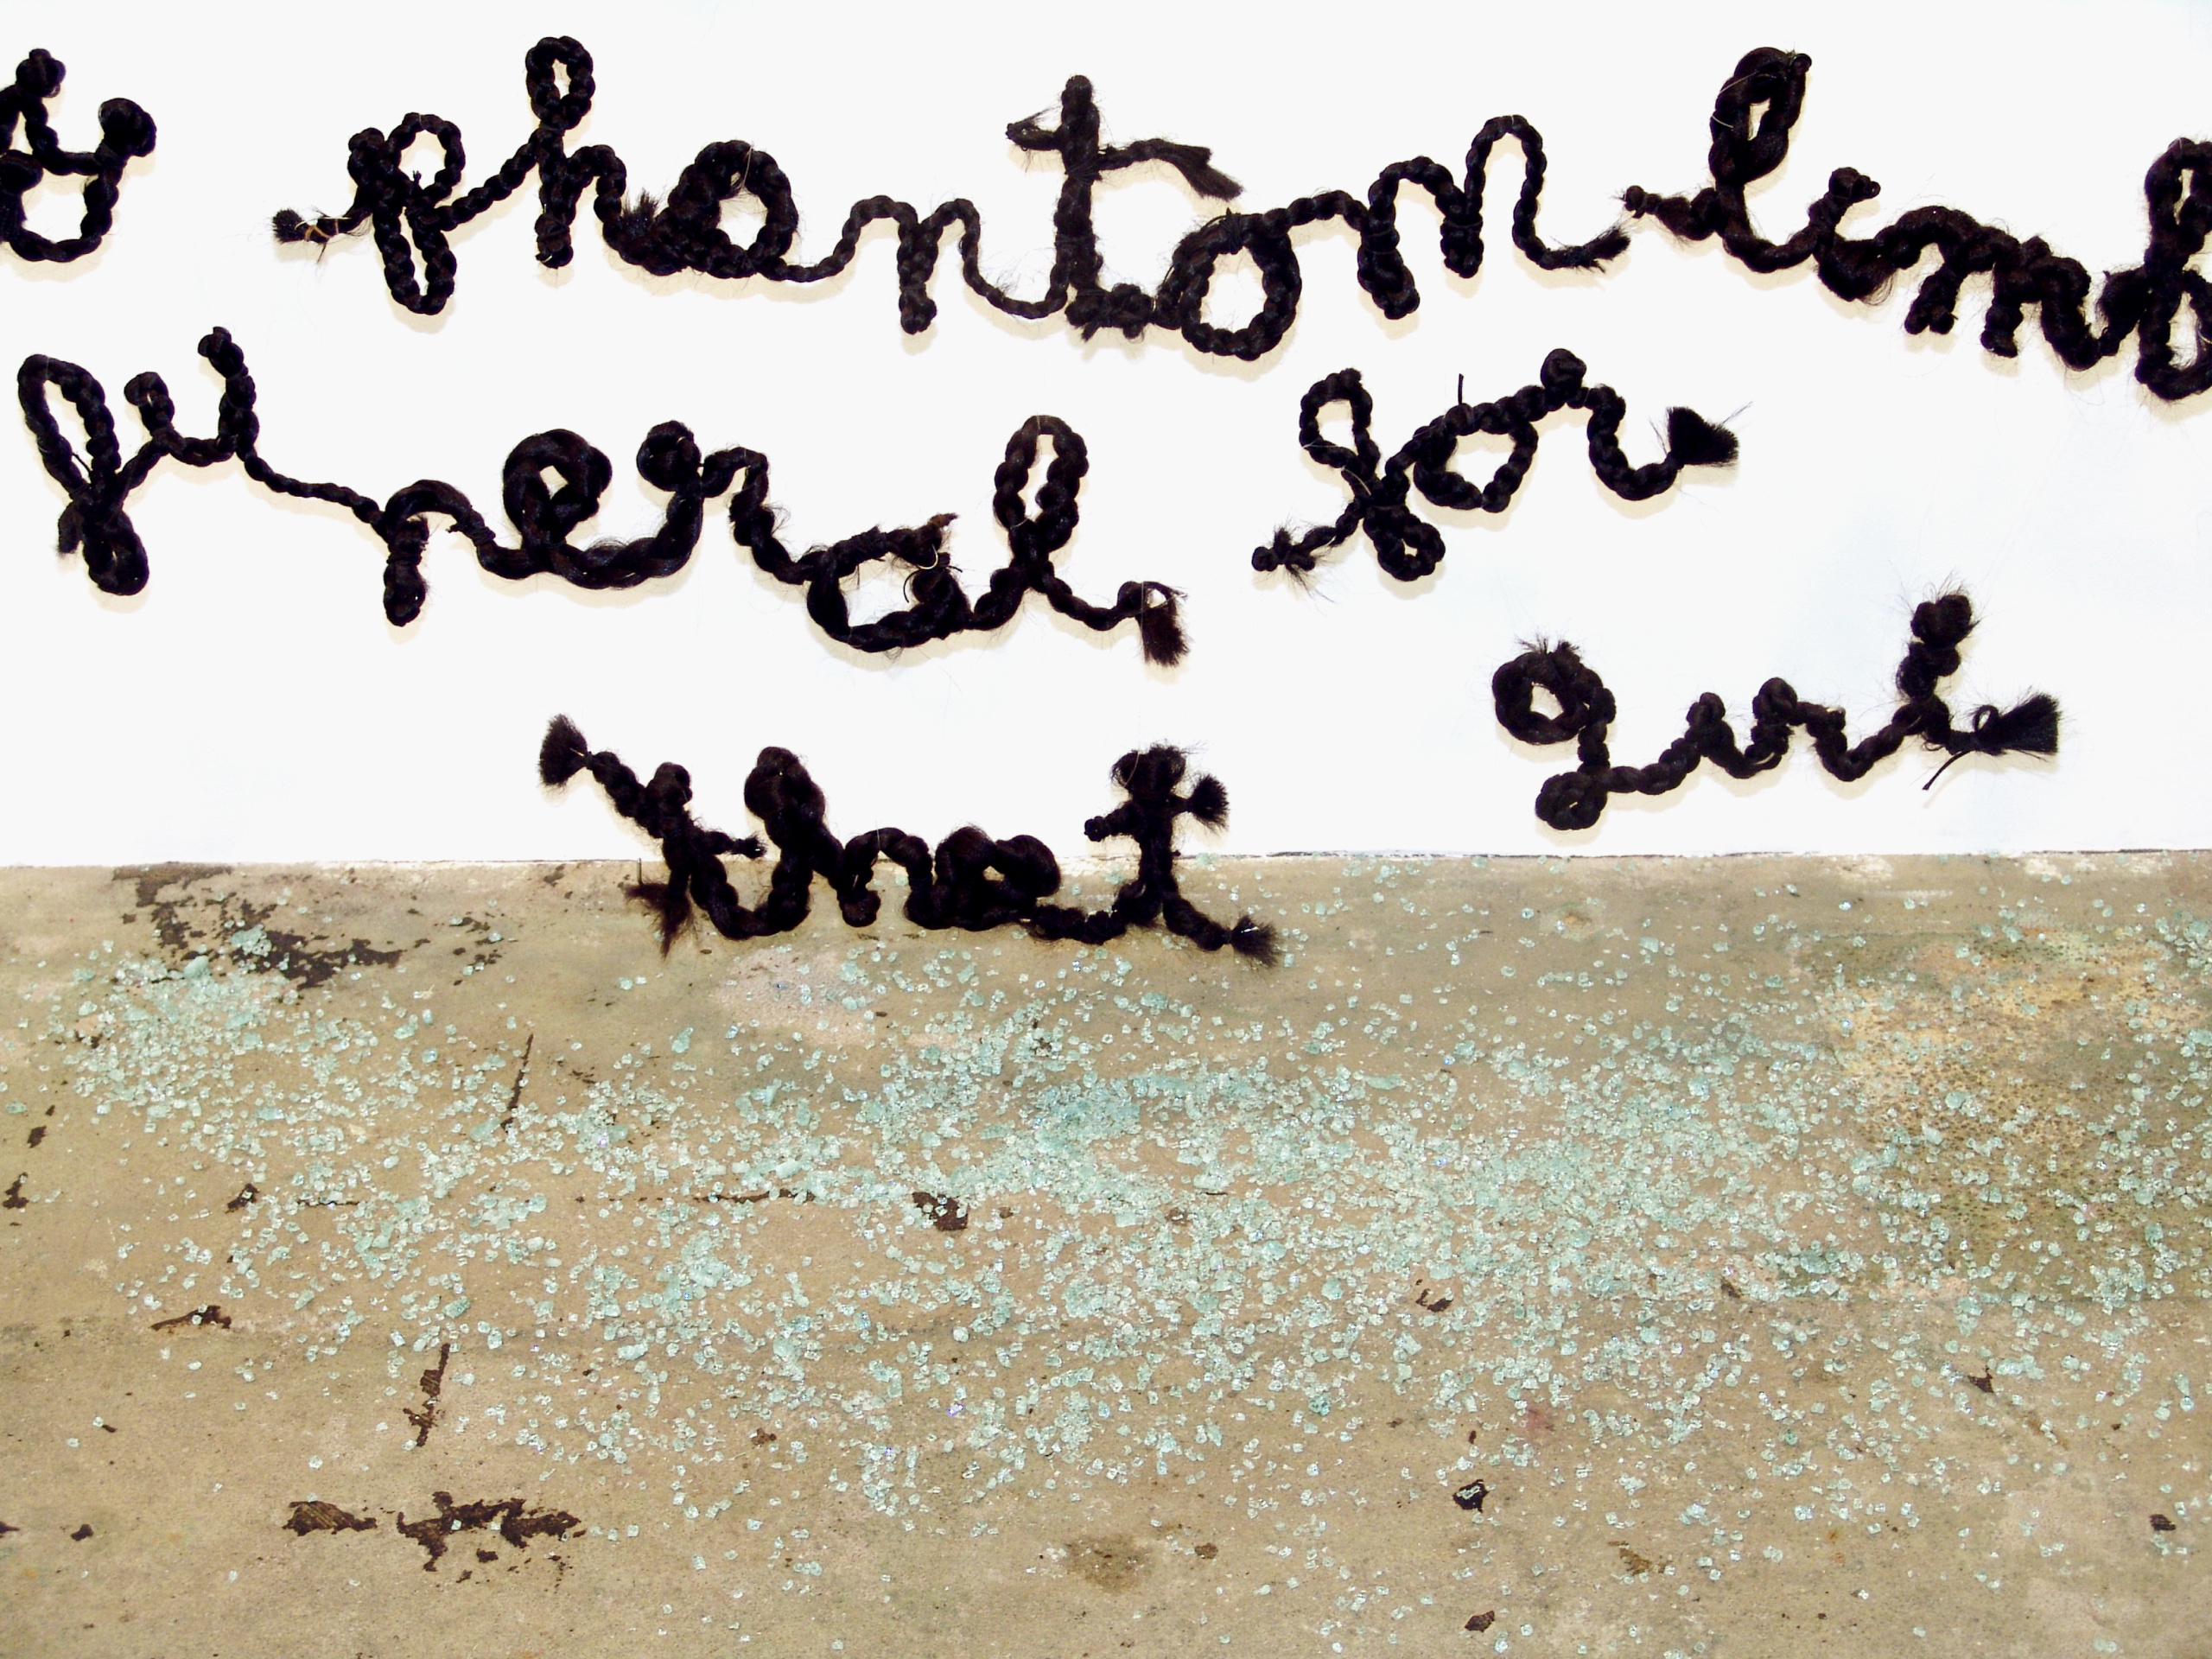 phantom limb
funeral for
that girl